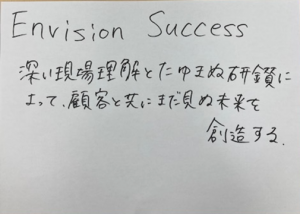 Envision Success
深い現場理解とたゆまぬ研鑽に
よって、顧客と共にまだ見ぬ未来を
創造する.